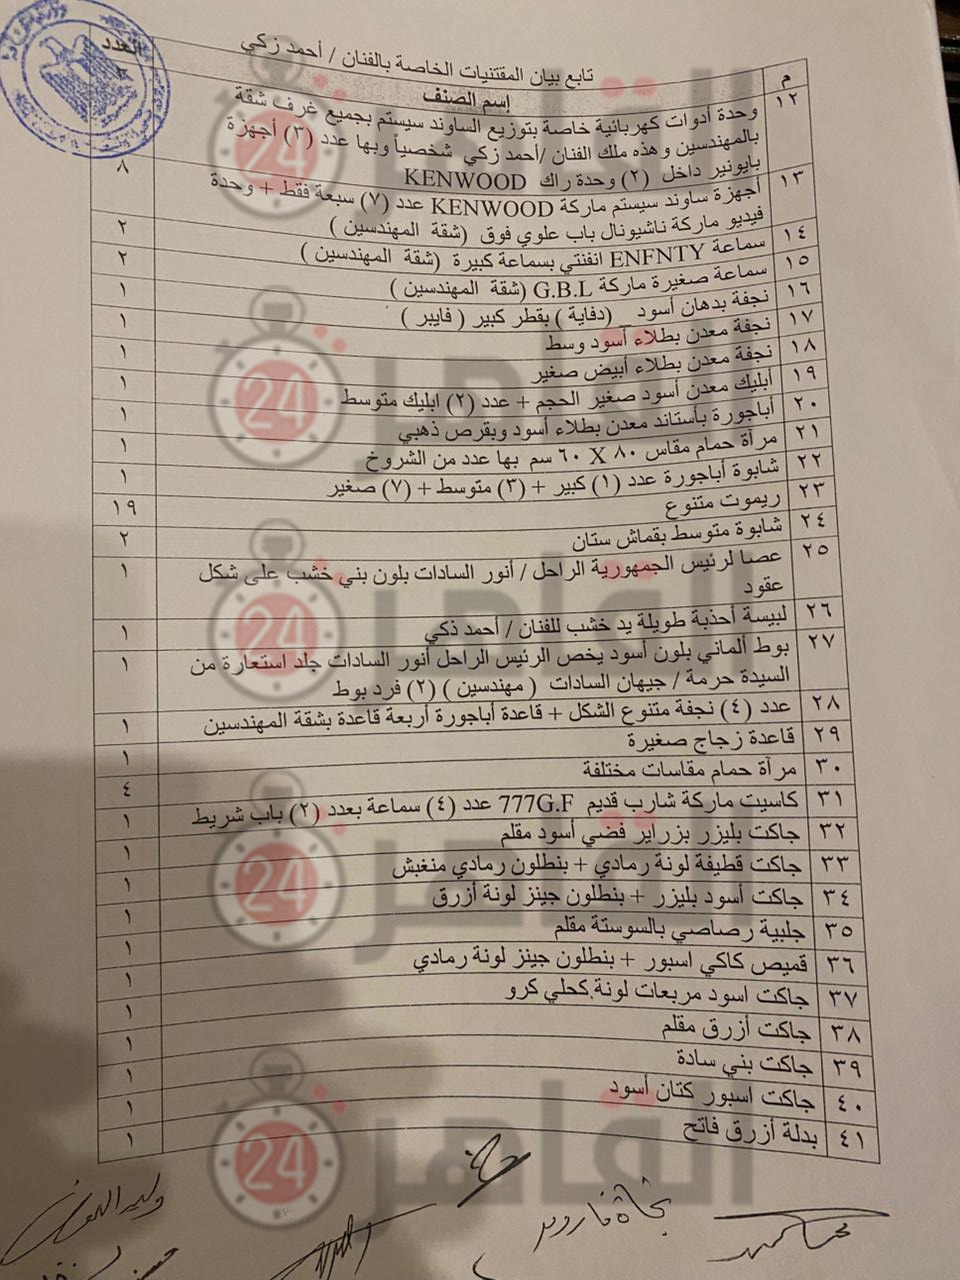 تابع بيان المقتنيات الخاصة بالفنان / أحمد زكي
م إسم الصنف العدد
١٢ وحدة أدوات كهربائية خاصة بتوزيع الساوند سيستم بجميع غرف شقة
بالمهندسين وهذه ملك الفنان /أحمد زكي شخصياً وبها عدد (٣) أجهزة
بايونير داخل (٢) وحدة راك KENWOOD
١٣ أجهزة ساوند سيستم ماركة KENWOOD عدد (٧) سبعة فقط + وحدة ٨
فيديو ماركة ناشيونال باب علوي فوق (شقة المهندسين )
١٤ سماعة ENFNTY انفنتي بسماعة كبيرة (شقة المهندسين ) ٢
١٥ سماعة صغيرة ماركة G.B.L (شقة المهندسين ) ٢
١٦ نجفة بدهان أسود (دفاية ) بقطر كبير ( فايبر ) ١
١٧ نجفة معدن بطلاء أسود وسط ١
١٨ نجفة معدن بطلاء أبيض صغير ١
١٩ أبليك معدن أسود صغير الحجم + عدد (٢) ابليك متوسط ١
٢٠ أباجورة بأستاند معدن بطلاء أسود وبقرص ذهبي ١
٢١ مرآة حمام مقاس ٨٠ X ٦٠ سم بها عدد من الشروخ ١
٢٢ شابوة أباجورة عدد (١) كبير + (٣) متوسط + (٧) صغير ١
٢٣ ريموت متنوع ١٩
٢٤ شابوة متوسط بقماش ستان ٢
٢٥ عصا لرئيس الجمهورية الراحل / أنور السادات بلون بني خشب على شكل ١
عقود
٢٦ لبيسة أحذية طويلة يد خشب للفنان / أحمد ذكي ١
٢٧ بوط ألماني بلون أسود يخص الرئيس الراحل أنور السادات جلد استعارة من ١
السيدة حرمة / جيهان السادات ( مهندسين ) (٢) فرد بوط
٢٨ عدد (٤) نجفة متنوع الشكل + قاعدة أباجورة أربعة قاعدة بشقة المهندسين ١
٢٩ قاعدة زجاج صغيرة ١
٣٠ مرآة حمام مقاسات مختلفة ٤
٣١ كاسيت ماركة شارب قديم 777G.F عدد (٤) سماعة بعدد (٢) باب شريط ١
٣٢ جاكت بليزر بزراير فضي أسود مقلم ١
٣٣ جاكت قطيفة لونة رمادي + بنطلون رمادي منغبش ١
٣٤ جاكت أسود بليزر + بنطلون جينز لونة أزرق ١
٣٥ جلبية رصاصي بالسوستة مقلم ١
٣٦ قميص كاكي اسبور + بنطلون جينز لونة رمادي ١
٣٧ جاكت اسود مربعات لونة كحلي كرو ١
٣٨ جاكت أزرق مقلم ١
٣٩ جاكت بني سادة ١
٤٠ جاكت اسبور كتان أسود ١
٤١ بدلة أزرق فاتح ١
القاهرة 24
القاهرة 24
القاهرة 24
القاهرة 24
القاهرة 24